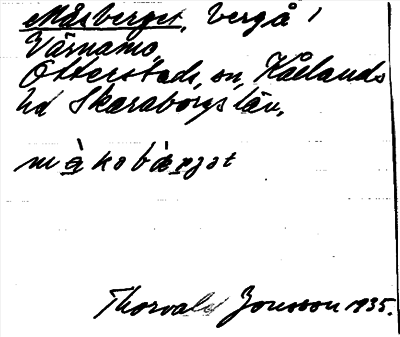 Måsberget, berg å 1
Värnamo,
Otterstads sn, Kållands
hd Skaraborgs län.
Thorvald Jonsson 1935.